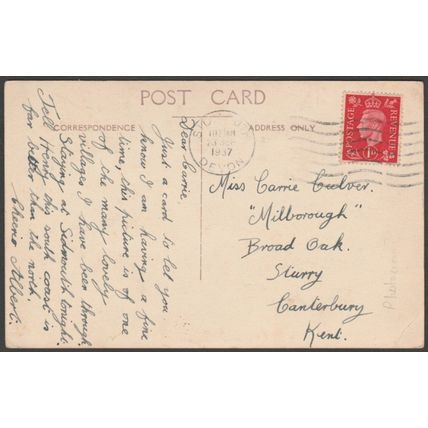 POST CARD
CORRESPONDENCE
ADDRESS ONLY
Dear Carrie,
Just a card to let you
know I am having a fine
time, this picture is of one
of the many lovely
villages I have been through.
Staying at Sidmouth tonight.
Tell Henry this south coast is
far better than the north.
Cheerio Albert.
DEVON
1937
POSTAGE
REVENUE
1D
Miss Carrie Culver.
"Milborough"
Broad Oak.
Sturry
Canterbury
Kent.